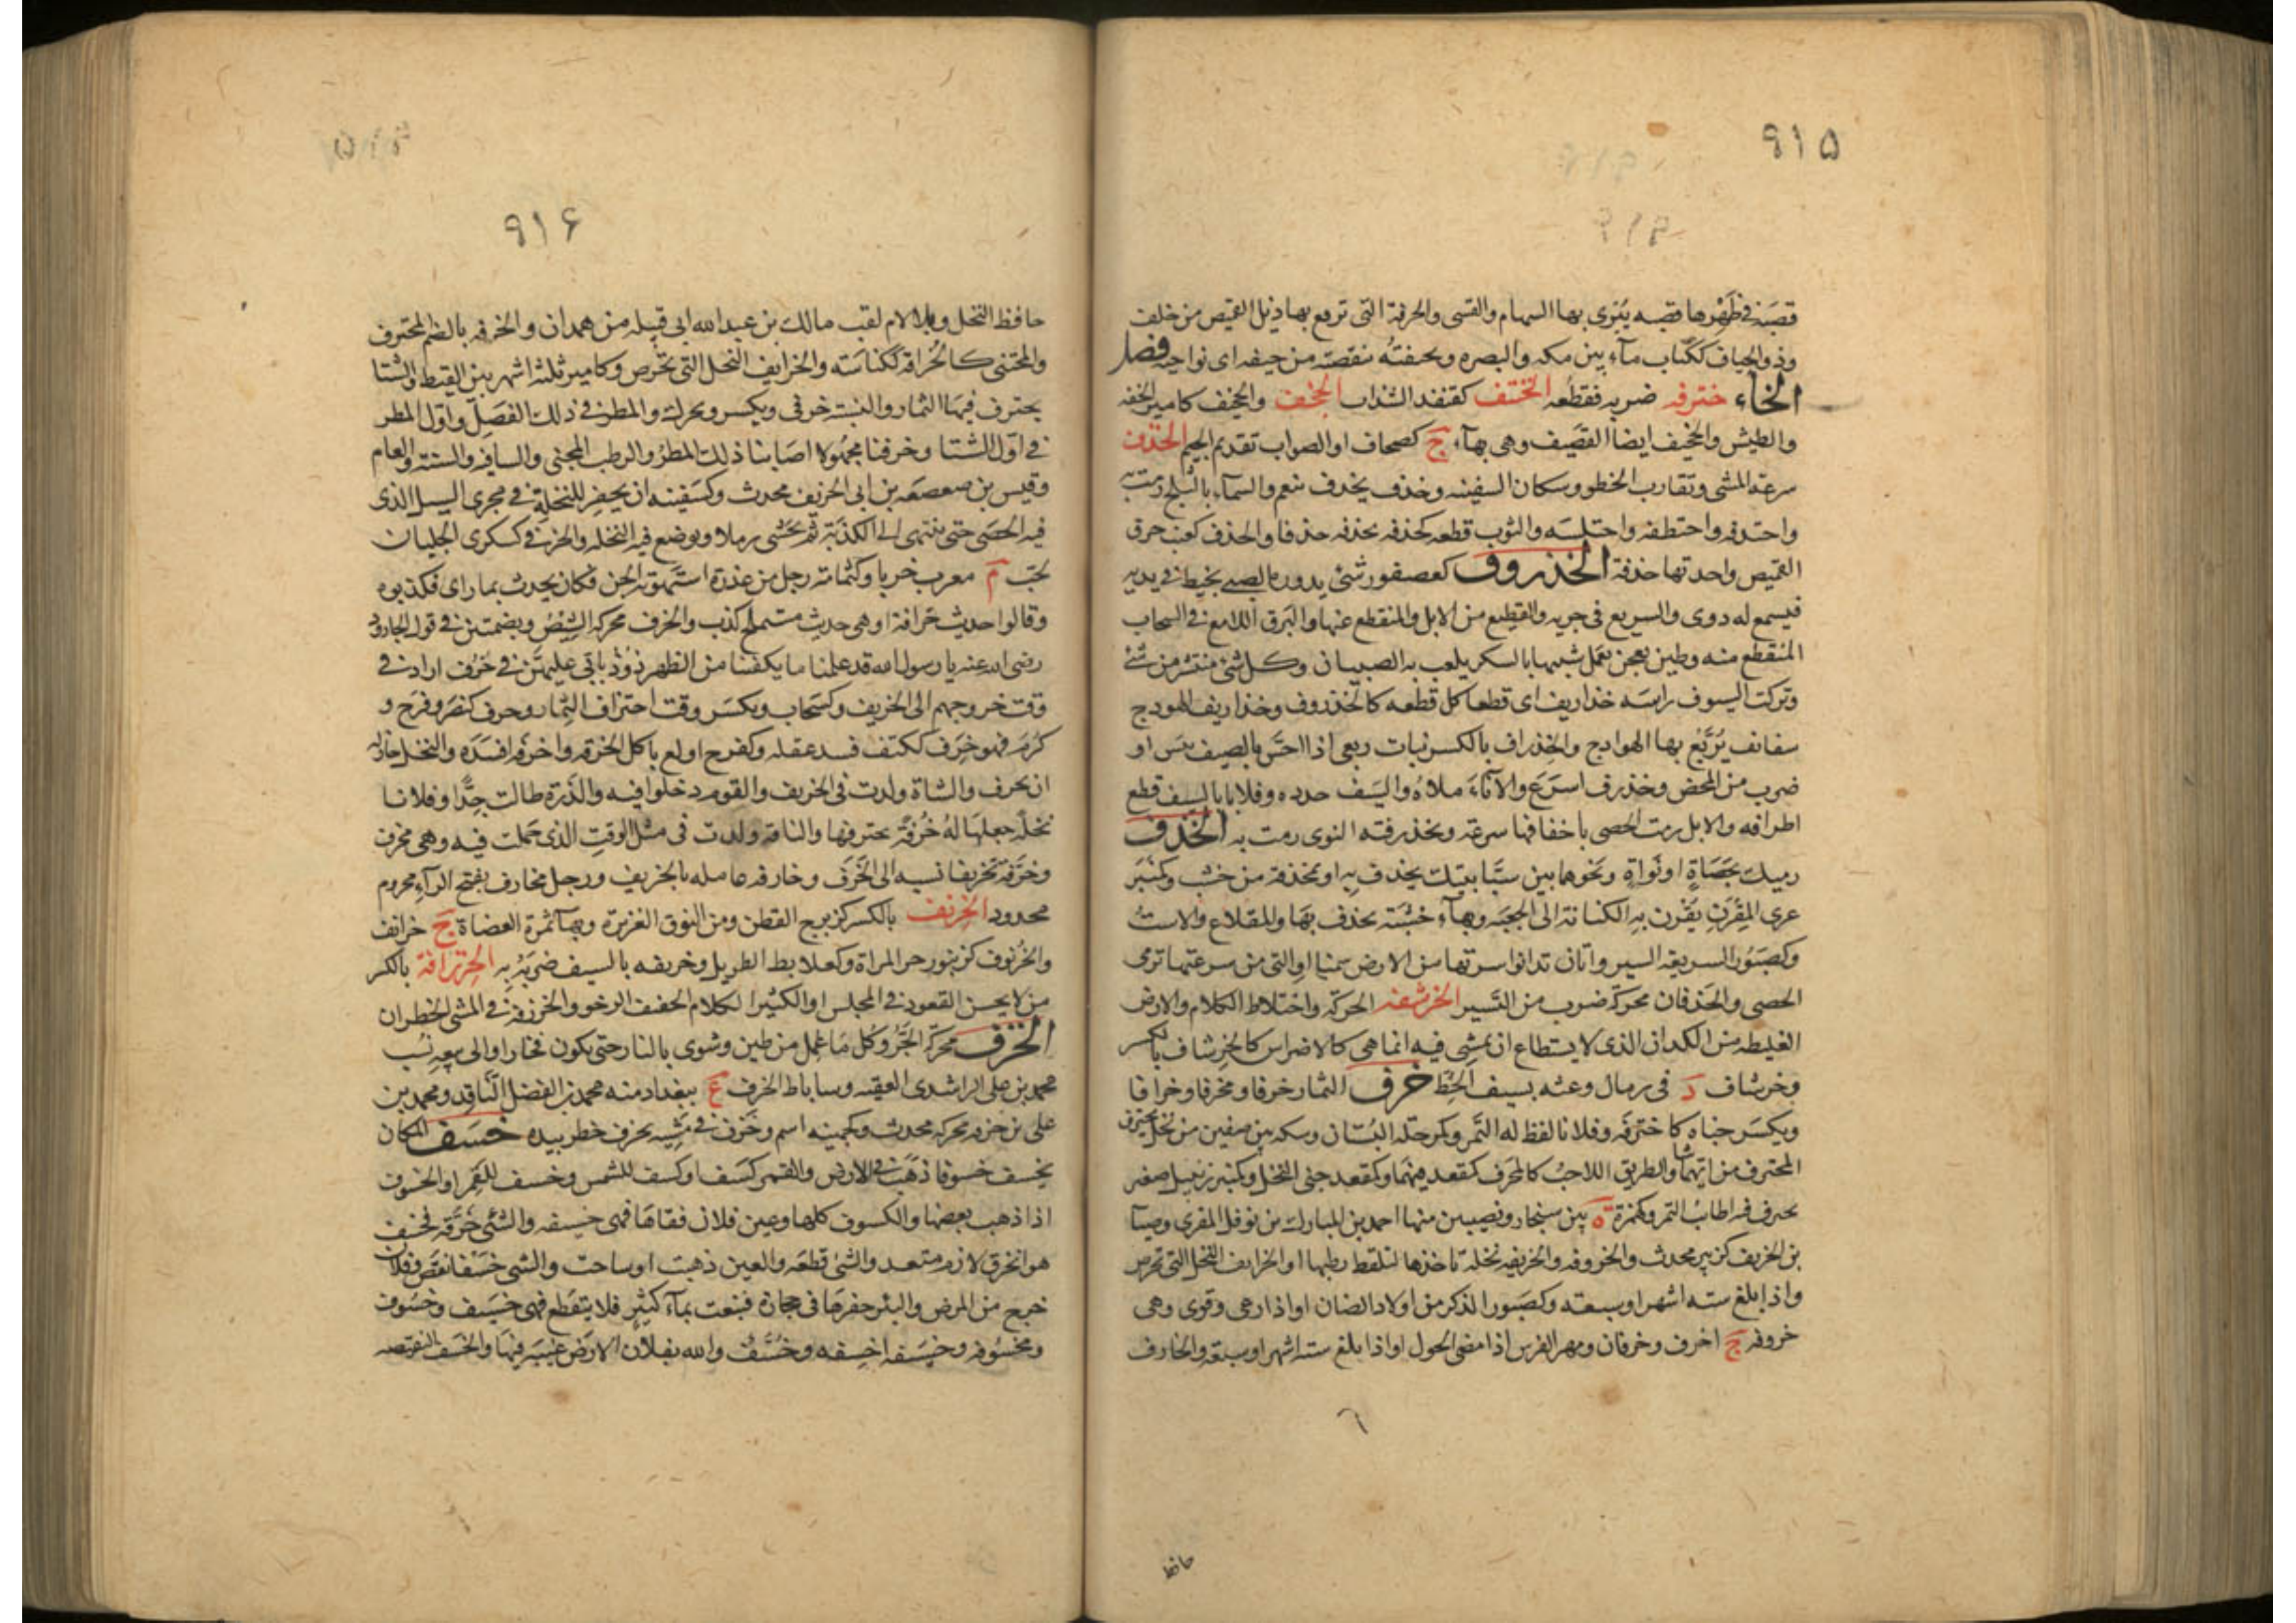 ٩١٥
قصبة في ظهرها قصبه يبرى بها السهام والقسى والخرقة التى ترقع بها ذيل القميص من خلف
وذو الحياف ككتاب مآء بين مكه والبصره وتحيفته تنقصته من حيفه اى نواحيه فصل
الخآء خترفه ضربه فقطعه الختنف كقنفذ السذاب الخجف والخجيف كامير الخفه
والطيش والخجيف ايضا القضيف وهى بهآء ج كصحاف او الصواب تقديم الجيم الخذف
سرعة المشى وتقارب الخطو وسكان السفينه وخذف يخدف تنعم والسمآء بالثلج رمت به
واختدفه واختطفه واختلسه والثوب قطعه كخذفه يخذفه خذفا والخذف كعنب خرق
القميص واحدتها خذفة الخذروف كعصفور شئ يدوره الصبى بخيط فى يديه
فيسمع له دوى والسريع فى جريه والقطيع من الابل والمنقطع عنها والبرق اللامع فى السحاب
المنقطع منه وطين يعجن يعمل شبيها بالسكر يلعب به الصبيان وكل شئ منتشر من شئ
وتركت السيوف راسه خذاريف اى قطعا كل قطعه كالخذروف وخذاريف الهودج
سفائف يربع بها الهوادج والخذراف بالكسر نبات ربعى اذا احس بالصيف يبس او
ضرب من الحمض وخذرف اسرع والاناء ملاه والسيف حدده وفلانا بالسيف قطع
اطرافه والابل رمت الحصى باخفافها سرعة وتخذرفته النوى رمت به الخذف
رميك بحصاة او نواة ونحوهما بين سبابتيك يخذف به او بمخذفة من خشب وكمنبر
عرى المقرن يقرن به الكنانة الى الجعبه وبهآء خشبة يخذف بها والمقلاع والاست
وكصبور السريعه السير واتان تدانو سرتها من الارض سمنا او التى من سرعتها ترمى
الحصى والخذفان محركة ضرب من السير الخرشفه الحركة واختلاط الكلام والارض
الغليظه من الكدان الذى لا يستطاع ان يمشى فيه انما هى كالاضراس كالخرشاف بالكسر
وخرشاف د فى رمال وعثه بسيف الخط خرف الثمار خرفا ومخرفا وخرافا
ويكسر جناه كاخترفه وفلانا لقط له التمر وكمرحله البستان وسكه بين صفين من نخل يخترف
المخترف من ايهما شا والطريق اللاحب كالمخرف كمقعد فيهما وكمقعد جنى النخل وكمنبر زنبيل صغير
يخترف فيه اطايب التمر وكهمزة ه بين سنجار ونصيبين منها احمد بن المبارك بن نوفل المقرى وضيآ
بن الخريف كزبير محدث والخروفه والخريفه نخلة تاخذها لتلقط رطبها او الخرايف النخل التى تخرص
واذا بلغ سته اشهر او سبعته وكصبور الذكر من اولاد الضان او اذا رعى وقوى وهى
خروفه ج اخرف وخرفان ومهر الفرس اذا مضى الحول او اذا بلغ سته اشهر او سبعة والخارف
حافظ
٩١۶
حافظ النخل وبلا لام لقب مالك بن عبد الله ابى قبيله من همدان والخرفه بالضم المخترف
والمجتنى كالخرافة ككناسة والخرايف النخل التى تخرص وكامير ثلثة اشهر بين القيظ والشتا
يخترف فيها الثمار والنسبة خرفى ويكسر ويحرك والمطر فى ذلك الفصل واول المطر
فى اول الشتا وخرفنا مجهولا اصابنا ذلك المطر والرطب المجنى والساقيه والسنة والعام
وقيس بن صعصعه بن ابى الخريف محدث وكسفينه ان يحفر للنخلة فى مجرى السيل الذى
فيه الحصى حتى ينتهى الى الكذبة ثم يحشى رملا ويوضع فيه النخله والخرفى كسكرى الجلبان
لحب م معرب خربا وكثمامة رجل من عذرة استهوته الجن فكان يحدث بما راى فكذبوه
وقالوا حديث خرافة او هى حديث مستملح كذب والخرف محركة الشيص وبضمتين فى قول الجارود
رضى الله عنه يا رسول الله قد علمنا ما يكفينا من الظهر ذود ناتى عليهن فى خرف اراد فى
وقت خروجهم الى الخريف وكسحاب ويكسر وقت اختراف الثمار وخرف كنصر وفرح و
كرم فهو خرف ككتف فسد عقله وكفرح اولع باكل الخرفه واخرفه افسده والنخل حان له
ان يخرف والشاة ولدت فى الخريف والقوم دخلوا فيه والذرة طالت جدا وفلانا
نخلة جعلها له خرفة يخترفها والناقة ولدت فى مثل الوقت الذى حملت فيه وهى مخرف
وخرفه تخريفا نسبه الى الخرف وخارفه عامله بالخريف ورجل مخارف بفتح الرآء محروم
محدود الخرنف بالكسر كزبرج القطن ومن النوق الغزيرة وبهآ ثمرة العضاة ج خرانف
والخرنوف كزنبور حر المراة وكعلابط الطويل وخرنفه بالسيف ضربه به الخزرافة بالكسر
من لا يحسن القعود فى المجلس او الكثير الكلام الخفيف الرخو والخزرفة فى المشى الخطران
الخزف محركة الجر وكل ما عمل من طين وشوى بالنار حتى يكون فخارا والى بيعه نسب
محمد بن على الراشدى الفقيه وساباط الخزف ع ببغداد منه محمد بن الفضل الناقد ومحمد بن
على بن خزفه محركة محدث وكجهينه اسم وخزف فى مشيه يخزف خطر بيده خسف المكان
يخسف خسوفا ذهب فى الارض والقمر كسف او كسف للشمس وخسف للقمر او الخسوف
اذا ذهب بعضها والكسوف كلها وعين فلان فقاها فهى خسيفه والشئ خرقه فخسف
هو انخرق لازم متعد والشئ قطعه والعين ذهبت او ساخت والشى خسفا نقص وفلان
خرج من المرض والبئر حفرها فى حجارة فنبعت بمآء كثير فلا ينقطع فهى خسيف وخسوف
ومخسوفه وخسيفه اخسفه وخسف والله بفلان الارض غيبه فيها والخسف النقيصه